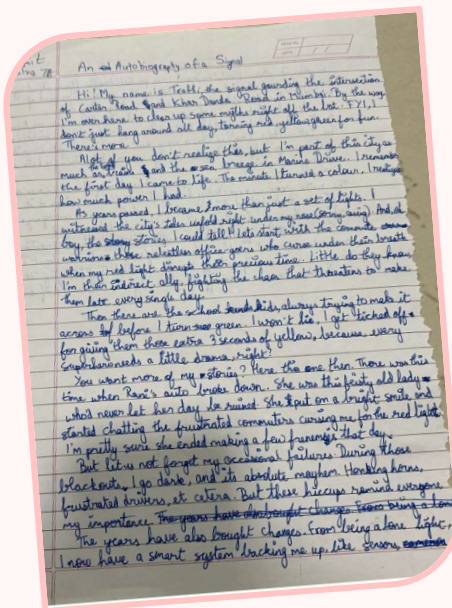 An Autobiography of a Signal
Hi! My name is Traffi, the signal guarding the intersection
of Carter Road and Khar Danda Road in Mumbai. By the way,
I'm over here to clear up some myths right off the bat. FYI, I
don't just hang around all day, turning red, yellow, green for fun.
There's more.
Alot of you don't realize this, but I'm part of this city as
much as the trains and the sea breeze in Marine Drive. I remember
the first day I came to life. The minute I turned a colour, I realized
how much power I had.
As years passed, I became more than just a set of lights. I
witnessed the city's tales unfold right under my nose And, oh
boy, the stories I could tell! Lets start with the commute
warriors those relentless office-goers who curse under their breath
when my red light disrupts their precious time. Little do they know,
I'm their indirect ally, fighting the chaos that threatens to make
them late every single day.
Then there are the school kids, always trying to make it
across before I turn green. I won't lie, I get ticked off
for giving them those extra 3 seconds of yellow, because, every
superhero needs a little drama, right?
You want more of my stories? Here this one then. There was this
time when Rani's auto broke down. She was this feisty old lady
who'd never let her day be ruined. She put on a bright smile and
started chatting the frustrated commuters cursing me for the red light.
I'm pretty sure she ended making a few that day.
But let us not forget my occasional failures. During those
blackouts, I go dark, and its absolute mayhem. Honking horns,
frustrated drivers, et cetera. But these hiccups remind everyone
my importance. The years have also bought changes. From being a lone
The years have also bought changes. From being a lone light,
I now have a smart system backing me up, like sensors,